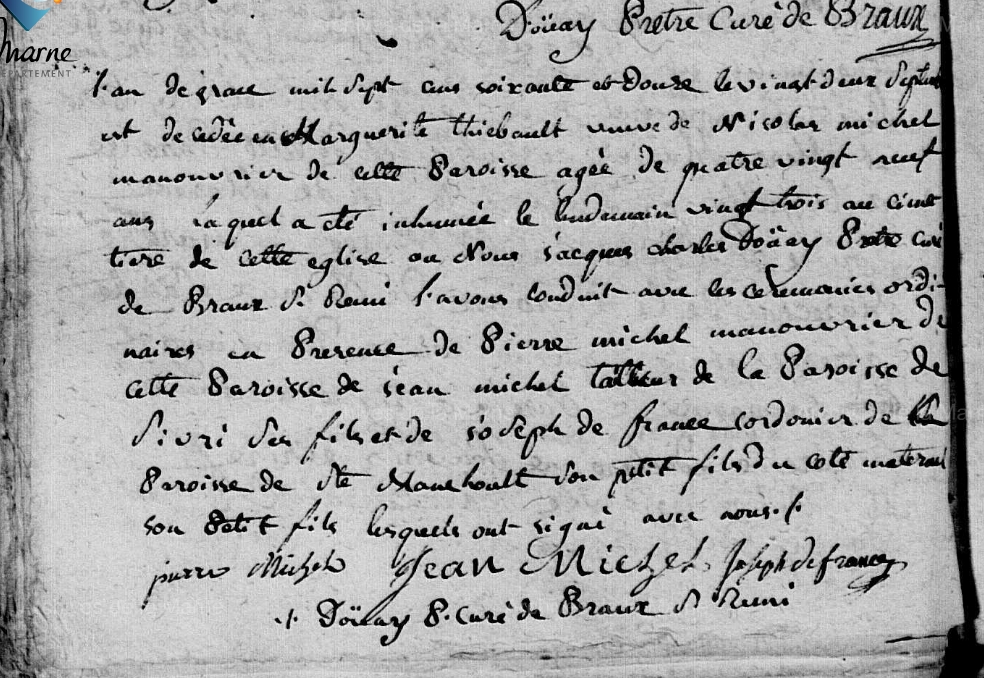 Doüay Pretre Curé de Braux
Marne
DEPARTEMENT
l'an de grace mil sept cens soixante et douze le vingt deux septem
est decedée en Marguerite thiebault veuve de Nicolas michel
manouvrier de cette Paroisse agée de quatre vingt neuf
ans laquel a eté inhumée le lendemain vingt trois au cime
tiere de cette eglise ou Nous jacques charles Doüay Pretre curé
de Braux St Remi l'avons conduit avec les ceremonies ordi-
naires en Presence de Pierre michel manouvrier de
cette Paroisse de jean michel tailleur de la Paroisse de
Sivri ses fils et de joseph de france cordonier de la
Paroisse de Ste Manehoult son petit fils du coté maternel
son Petit fils lesquels ont signé avec nous ./.
pierre Michel Jean Michel Joseph de france
./. Doüay P. curé de Braux St Remi